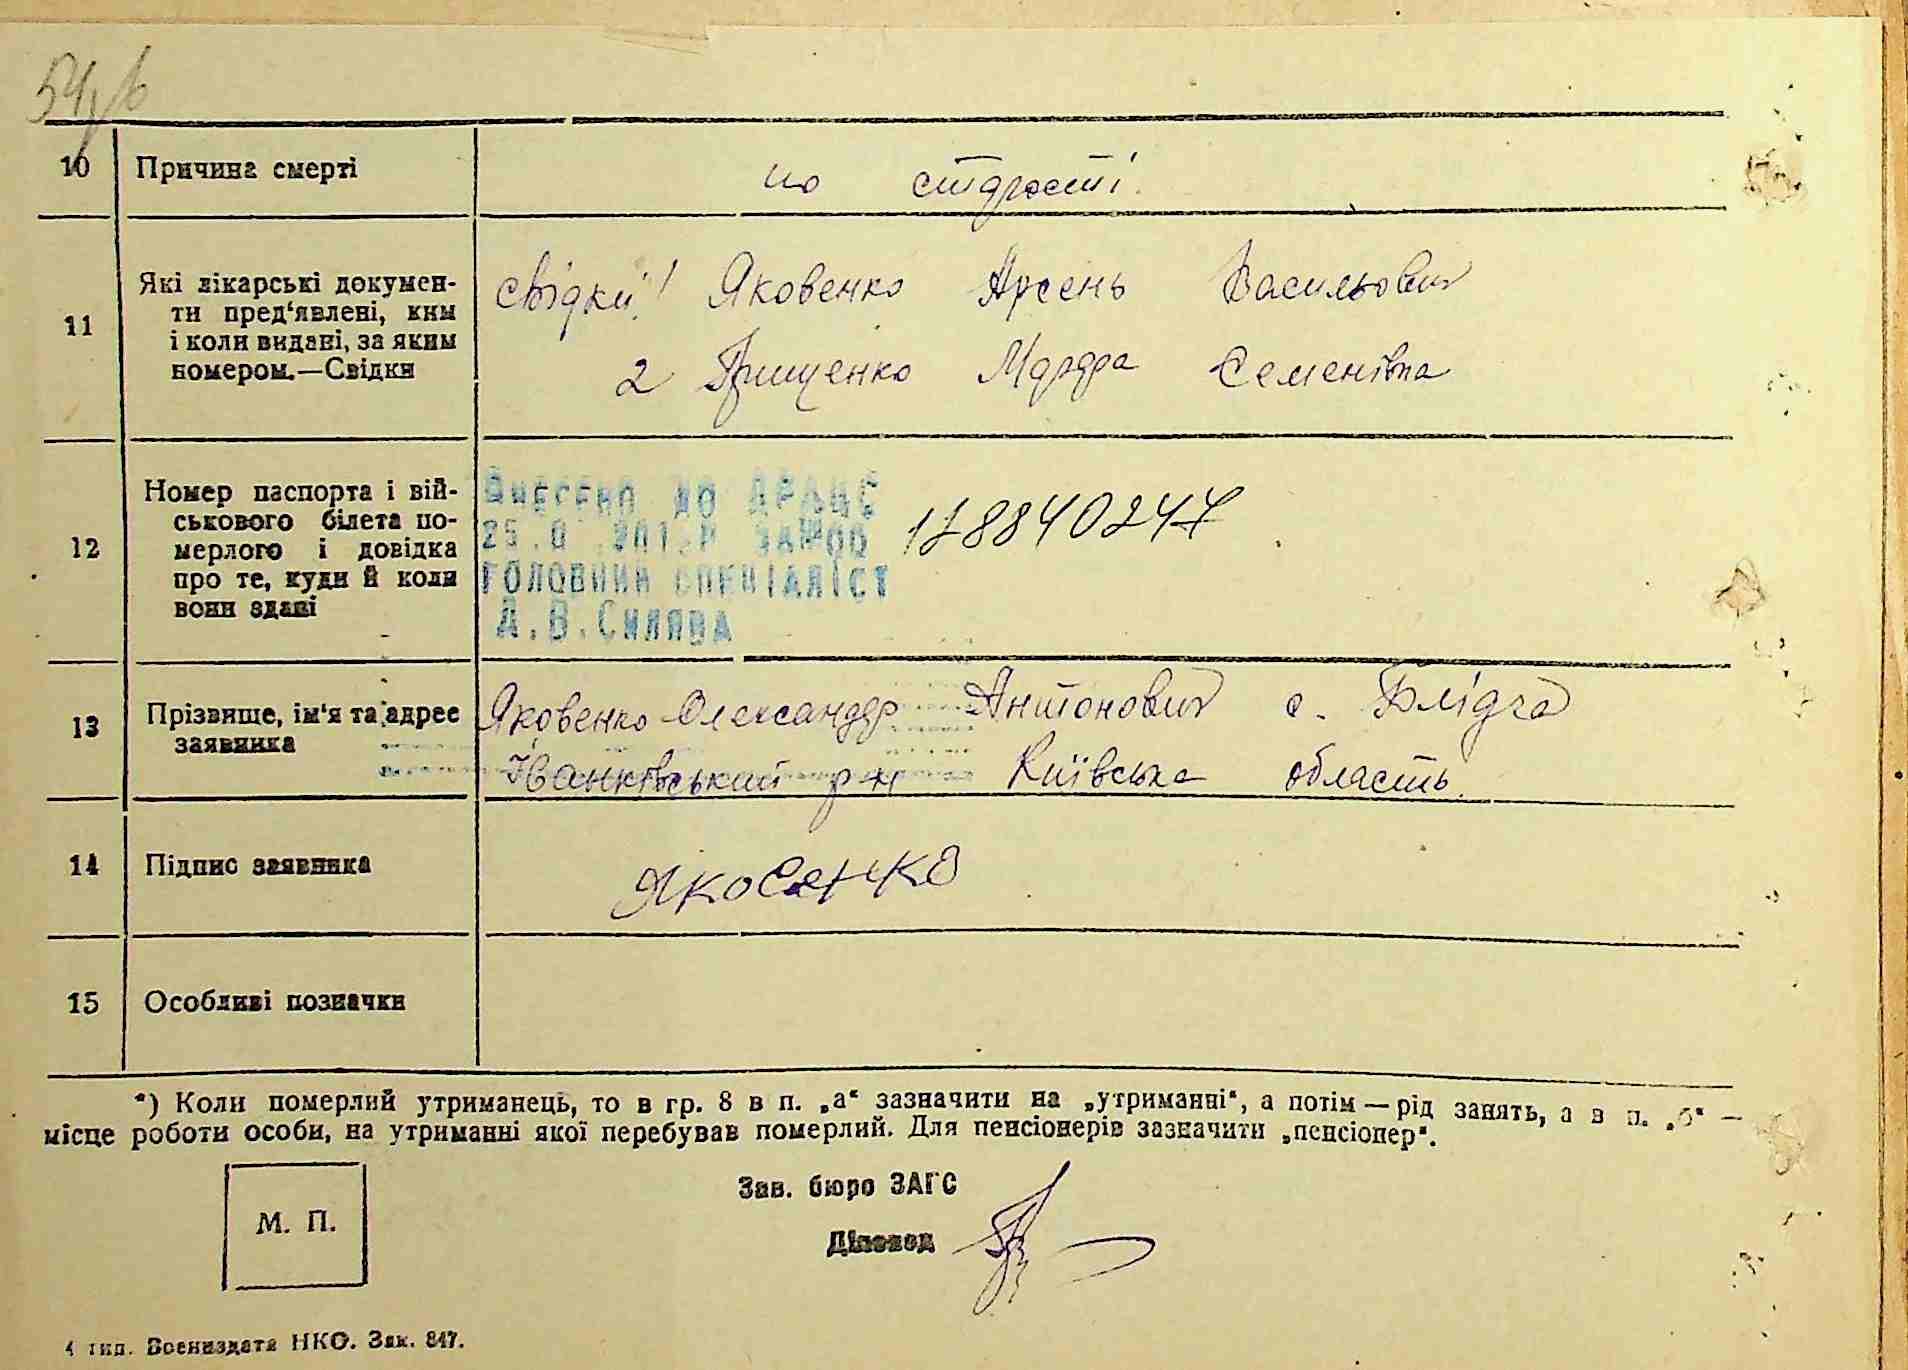 10 Причина смерті
по старості.
11 Які лікарські докумен-
ти пред'явлені, ким
і коли видані, за яким
номером.—Свідки
свідки! Яковенко Арсень Васильович
2 Грищенко Марфа Семенівна
12 Номер паспорта і вій-
ськового білета по-
мерлого і довідка
про те, куди й коли
вони здані
Внесено до ДРАЦС
Головний спеціаліст
Д.В.Силява
178840247
13 Прізвище, ім'я та адрес
заявника
Яковенко Олександр Антонович с. Блідча
Іванківський р-н Київська область.
14 Підпис заявника
Яковенко
15 Особливі позначки
*) Коли померлий утриманець, то в гр. 8 в п. „а“ зазначити на „утриманні“, а потім — рід занять, а в п. „б“ —
місце роботи особи, на утриманні якої перебував померлий. Для пенсіонерів зазначити „пенсіонер“.
М. П.
Зав. бюро ЗАГС
Діловод
4 тип. Воениздата НКО. Зак. 847.